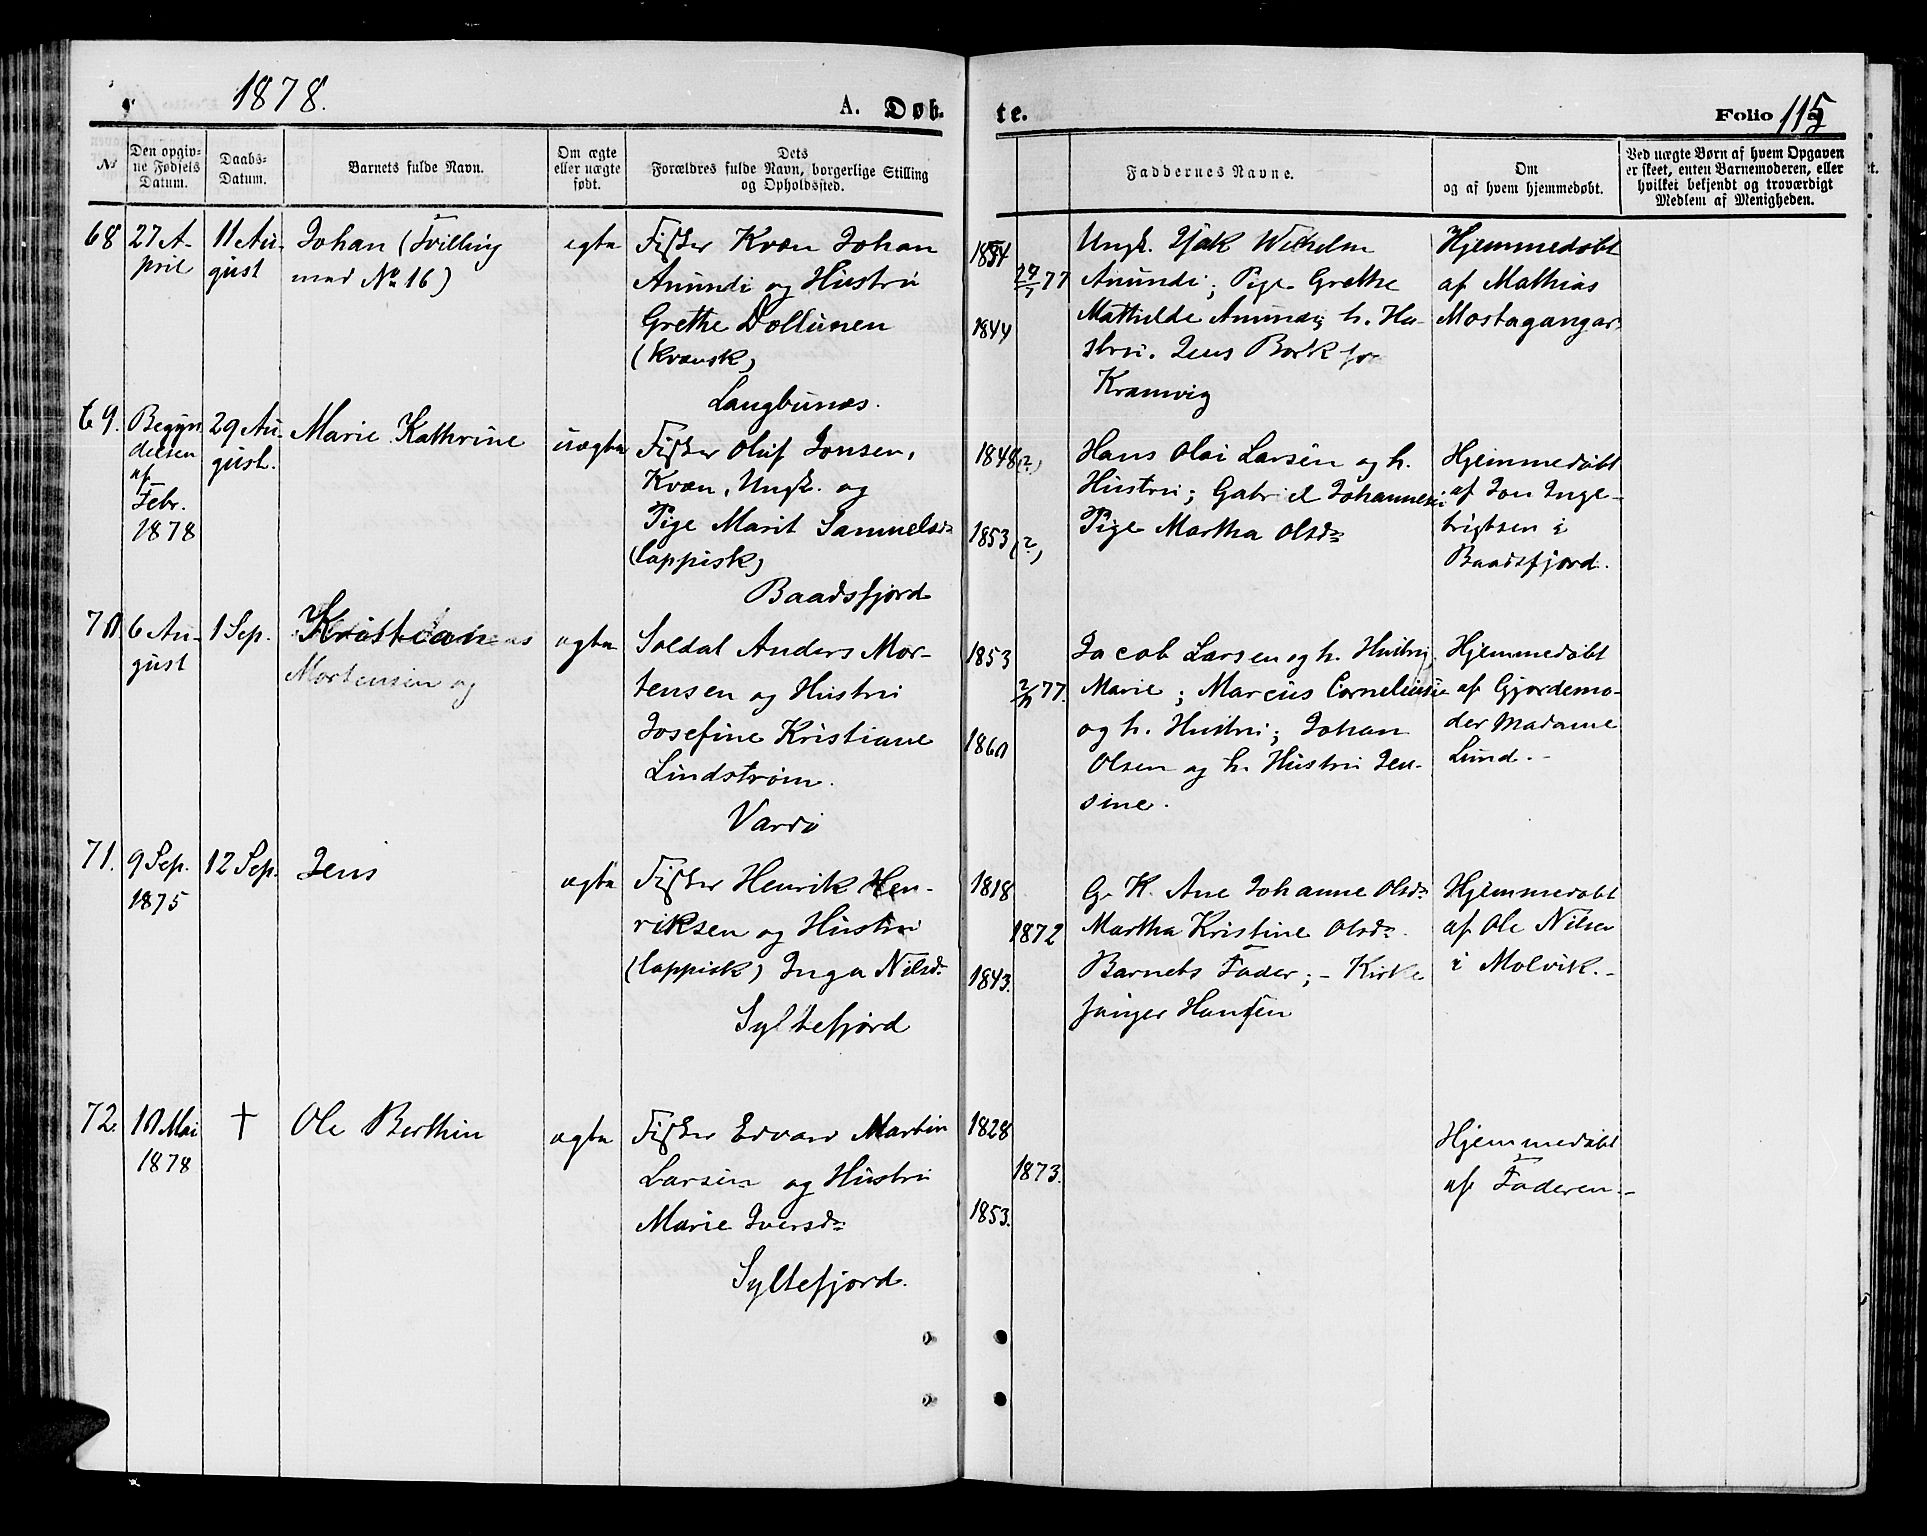 1878.
A. Døb-
te.
Folio 115
No
Den opgiv-
ne Fødsels
Datum.
Daabs-
Datum.
Barnets fulde Navn.
Om ægte
eller uægte
født.
Dets
Forældres fulde Navn, borgerlige Stilling
og Opholdssted.
Faddernes Navne.
Om
og af hvem hjemmedøbt.
Ved uægte Børn af hvem Opgaven
er skeet, enten Barnemoderen, eller
hvilket bekjendt og troværdigt
Medlem af Menigheden.
68
27 A-
pril
11 Au-
gust
Johan (Tvilling
med No 16)
ægte
Fisker Kvæn Johan
Anundi og Hustru
Grethe Dollunen
(kvænsk)
Langbunæs.
1834
77
1844
Ungk. Isak Wilhelm
Anundi; Pige Grethe
Mathilde Anundi; h. Hu-
stru. Jens Bork
Kramvig
Hjemmedøbt
af Mathias
Mostagangar
69.
Begyn
delsen
af
Febr.
1878
29 Au-
gust.
Marie Kathrine
uægte
Fisker Oluf Jonsen,
Kvæn, Ungk. og
Pige Marit Samuelsdr
(lappisk)
Baadsfjord
1848(?)
1853(?)
Hans Olai Larsen og h.
Hustru; Gabriel Johannesen
Pige Martha Olsdr
Hjemmedøbt
af Jon Inge-
brigtsen i
Baadsfjord.
70
6 Au-
gust
1 Sep.
Mortensen og
ægte
Soldat Anders Mor-
tensen og Hustru
Josefine Kristiane
Lindstrøm.
Vardø
1853
77.
1860
Jacob Larsen og h. Hustru
Marie; Marcus Corneliusen
og h. Hustru; Johan
Olsen og h. Hustru Jen-
sine.
Hjemmedøbt
af Gjordemo-
der Madame
Lund.-
71.
9 Sep.
1875
12 Sep.
Jens
ægte
Fisker Henrik Hen-
riksen og Hustru
(lappisk) Inga Nilsdr
Syltefjord
1818
1872
1843.
G. K. Ane Johanne Olsdr
Martha Kristine Olsdr.
Barnets Fader; - Kirke
sanger Hansen
Hjemmedøbt
af Ole Nilsen
i Molvik.-
72.
10 Mai
1878
†
Ole Berthin
ægte
Fisker Edvard Martin
Larsen og Hustru
Marie Iversdr
Syltefjord.
1828
1873.
1853.
Hjemmedøbt
af Faderen.-